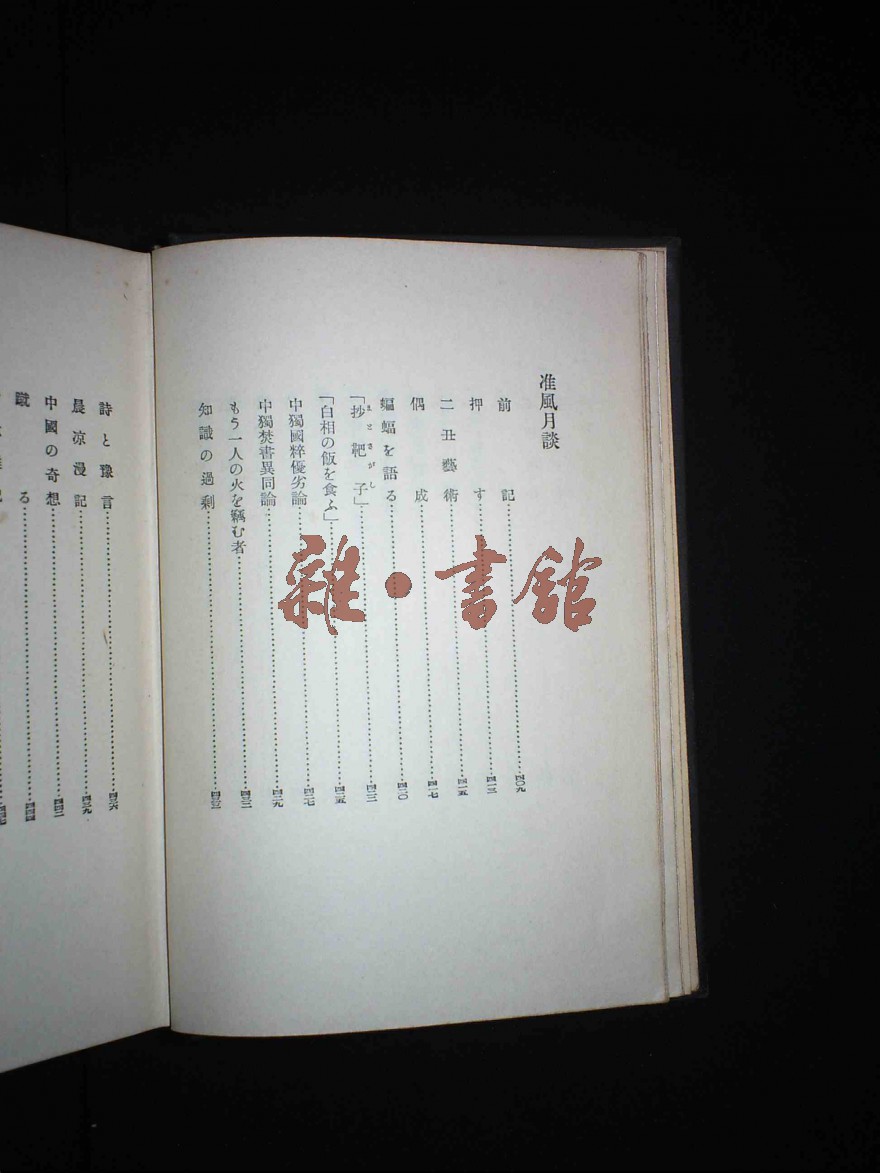 准風月談
前記……四〇九
押す……四一三
二丑藝術……四一五
偶成……四一七
蝙蝠を語る……四二〇
「抄靶子」……四二三
まとさがし
「白相の飯を食ふ」……四二五
中獨國粹優劣論……四二七
中獨焚書異同論……四二九
もう一人の火を竊む者……四三一
知識の過剩……四三三
詩と豫言……四三六
晨凉漫記……四三九
中國の奇想……四四二
蹴る……四四四
雜・書舘